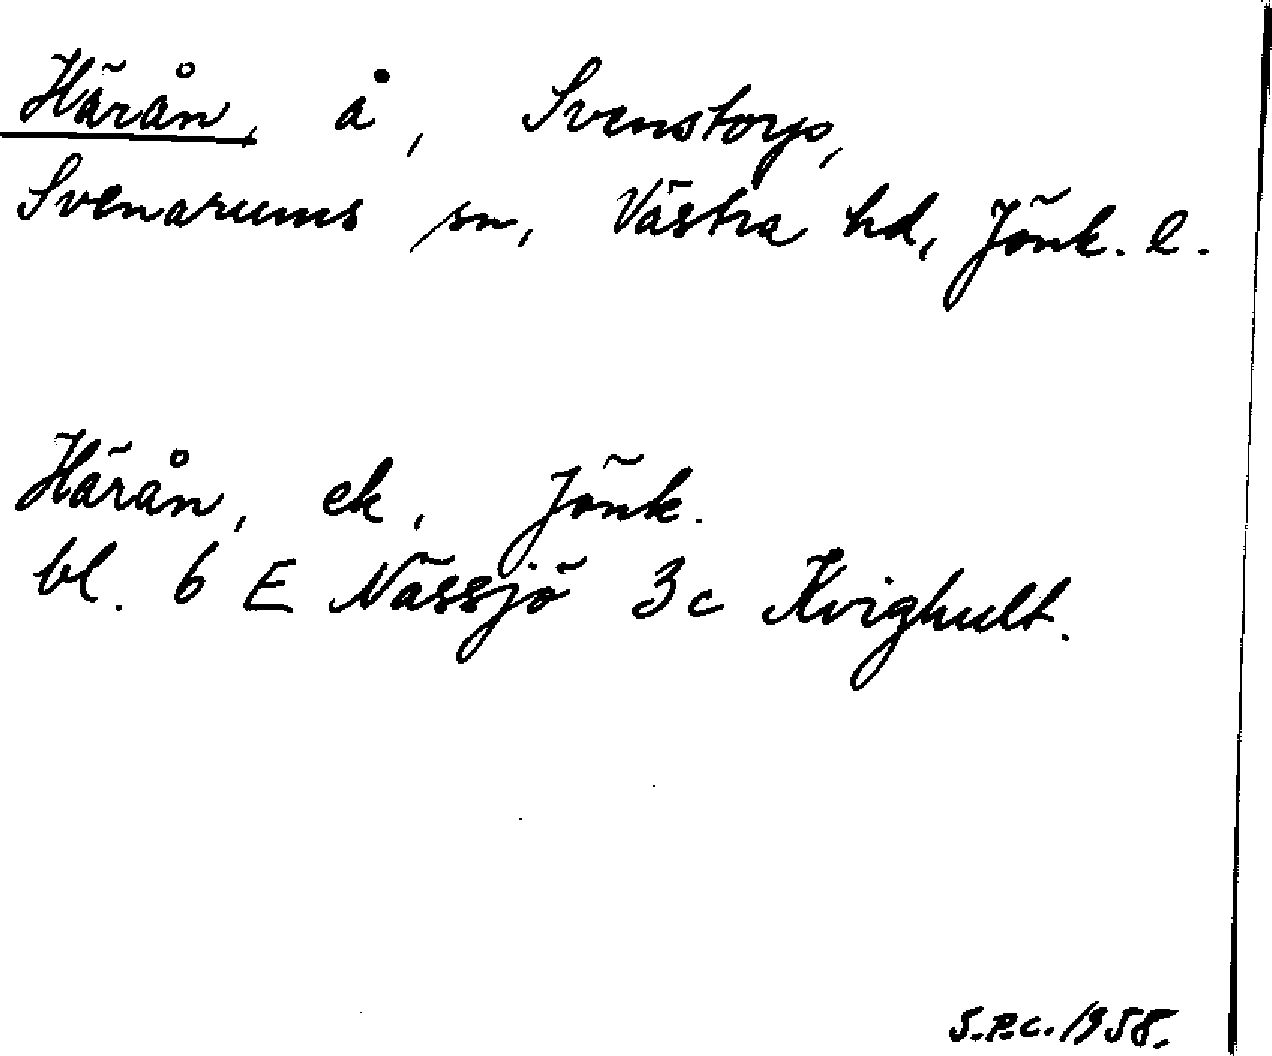 Härån, å, Svenstorp,
Svenarums sn, Västra hd, Jönk. l.
Härån, ek, Jönk.
bl. 6 E Nässjö 3c Kvighult.
S.P.C. 1958.